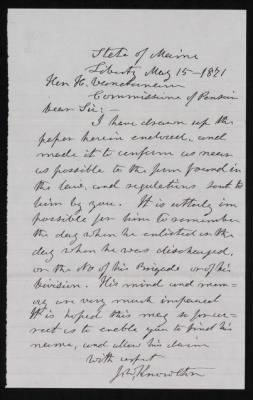 State of Maine
Liberty May 15 - 1871
Hon H. Van
Commissioner of Pension
Dear Sir: -
I have drawn up the
paper herein enclosed, and
made it to conform as near
as possible to the form found in
the law, and regulations sent to
him by you. It is utterly im
possible for him to remember
the day when he enlisted or the
day when he was discharged,
or the No of his Brigade or of his
Division. His mind and mem-
ory are very much impaired
It is hoped this may so far cor-
rect as to enable you to find his
name, and allow his claim
with respect
Knowlton